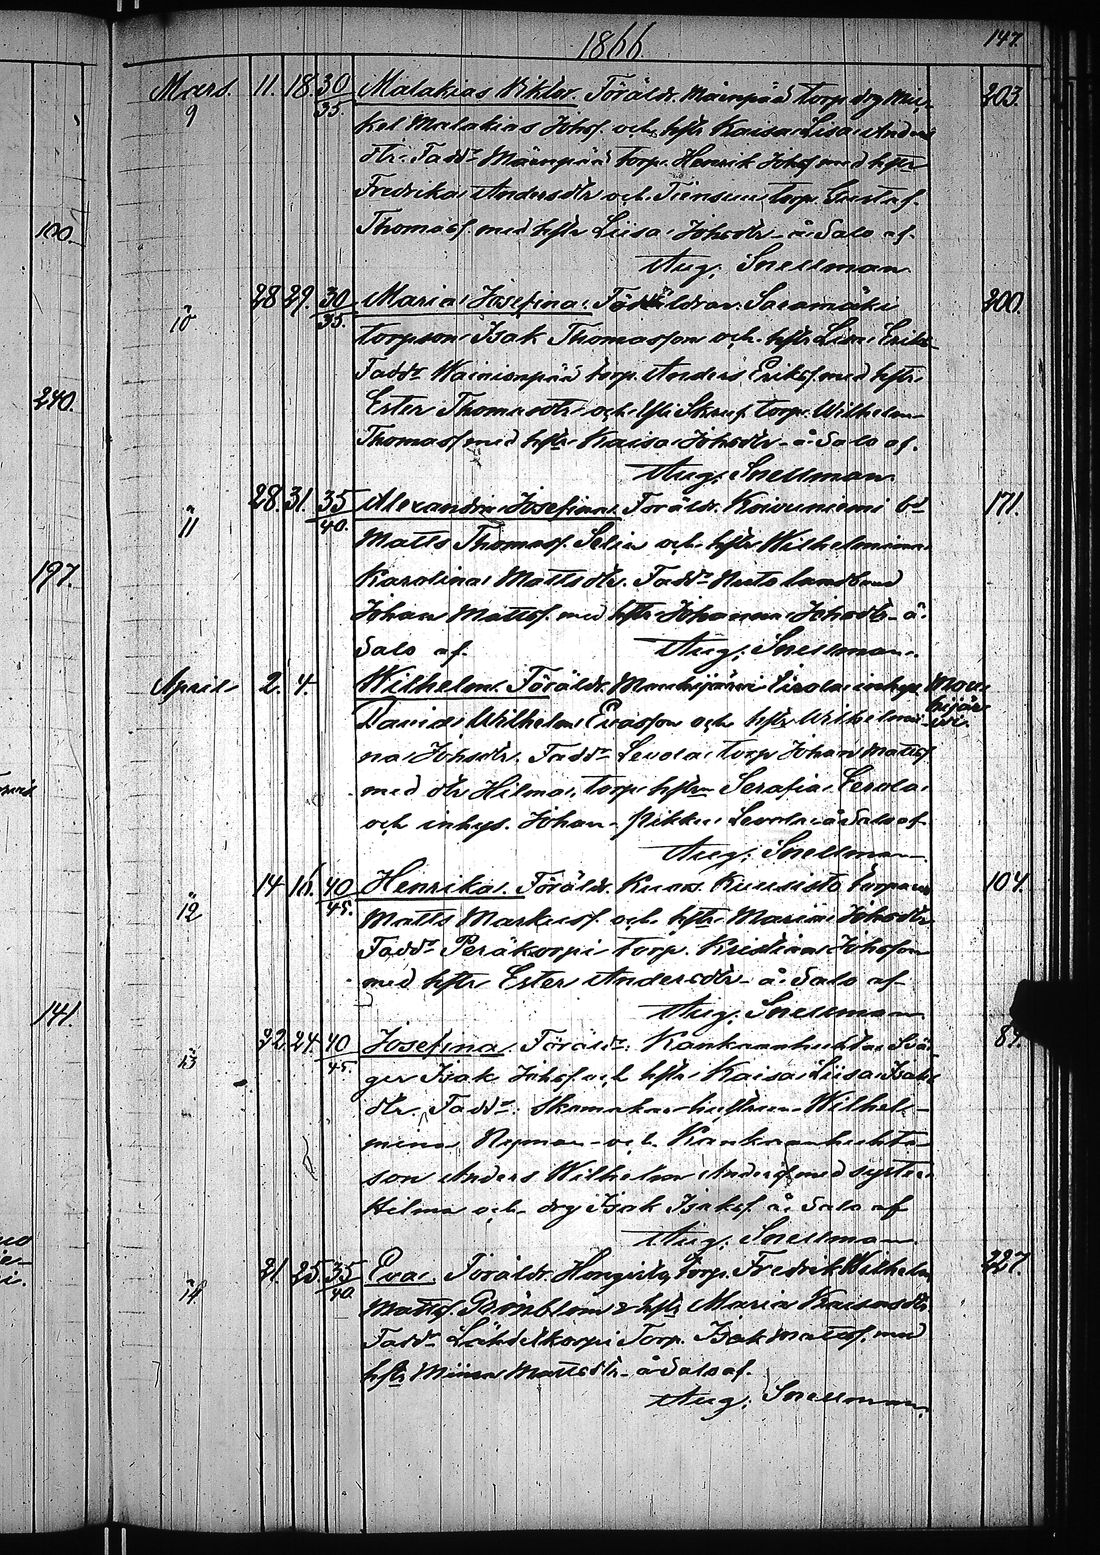 1866.
147.
Mars. 11. 18. 30/35. Malakias Viktor. Föräldr. Mäenpää torp. drg Mic- 203.
9
kel Malakias Johsf. och hstr Kaisa Lisa Anders
dtr. Fadd. Mäenpää torp. Henrik Johsf. med hstr
Fredrika Andersdtr och torp. Gustaf
Thomasf. med hstr Liisa Johsdtr å Salo af
Aug. Snellman
28 29. 30/35. Maria Josefina. Föräldrar: Saramäki 200.
10
torpson Isak Thomasson och hstr Lisa Eriks-
Fadd. Wainionpää torp. Anders Eriksf. med hstr
Ester Thomasdtr och torp. Wilhelm
Thomasf med hstr Kaisa Johsdtr å Salo af.
Aug. Snellman
28. 31. 35/40. Alexandra Josefina. Föräldr. Koivuniemi bd 171.
11
Matts Thomasf. Selin och hstr Wilhelmina
Karolina Mattsdtr. Fadd. landbond
Johan Mattsf. med hstr Johanna Johsdtr å
Salo af. Aug. Snellman.
April 2. 4. Wilhelm. Föräldr. Mouhijärvi inhys. Mou-
hijär-
vi.
David Wilhelm Ericsson och hstr Wilhelmi-
na Johsdtr. Fadd. Levola torp. Johan Mattsf.
med dtr Hilma, torp. hstrn Serafia Levola
och inhys. Johan Pikku Levola å Salo af
Aug. Snellman
14. 16. 40/45. Henrika. Föräldr. Kuusisto torparen 104.
12
Matts Markusf. och hstr Maria Johsdtr
Fadd. Peräkorpi torp. Kristian Johsson
med hstr Ester Andersdtr å Salo af
Aug. Snellman
22. 24. 40/45. Josefina. Föräldr. Kankaanhuhta Svå- 89.
13
ger Isak Johsf. och hstr Kaisa Liisa Isaks
dtr. Fadd. Skomakar hustrun Wilhel-
mina Nyman och Kankaanhuhta
son Anders Wilhelm Andersf med syster
Hilma och drg Isak Isaksf. å Salo af
Aug. Snellman.
21. 25. 35/40. Eva. Föräldr. torp. Fredrik Wilhelm 227.
14
Mattsf. Grönblom & hstr Maria Kaisasdtr
Fadd. Lähdekorpi Torp. Isak Mattsf. med
hstr Miina Mattsdtr å Salo af.
Aug. Snellman.
100.
240.
197.
141.